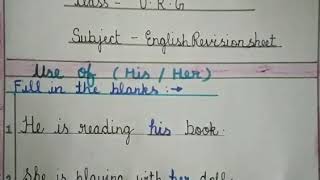 Class - U.K.G
Subject - English Revision sheet
Use of (His / Her)
Fill in the blanks :→
1 He is reading his book.
2 She is playing with her doll.